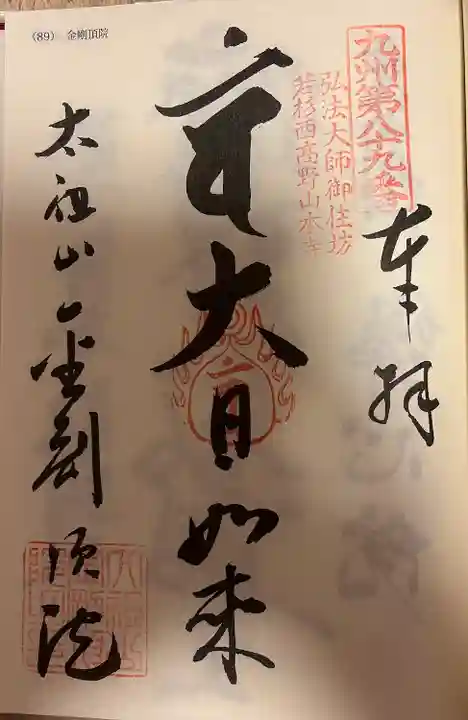 (89) 金剛頂院
九州第八十九番
弘法大師御住坊
若杉西高野山本寺
奉拝
大日如来
太祖山金剛頂院